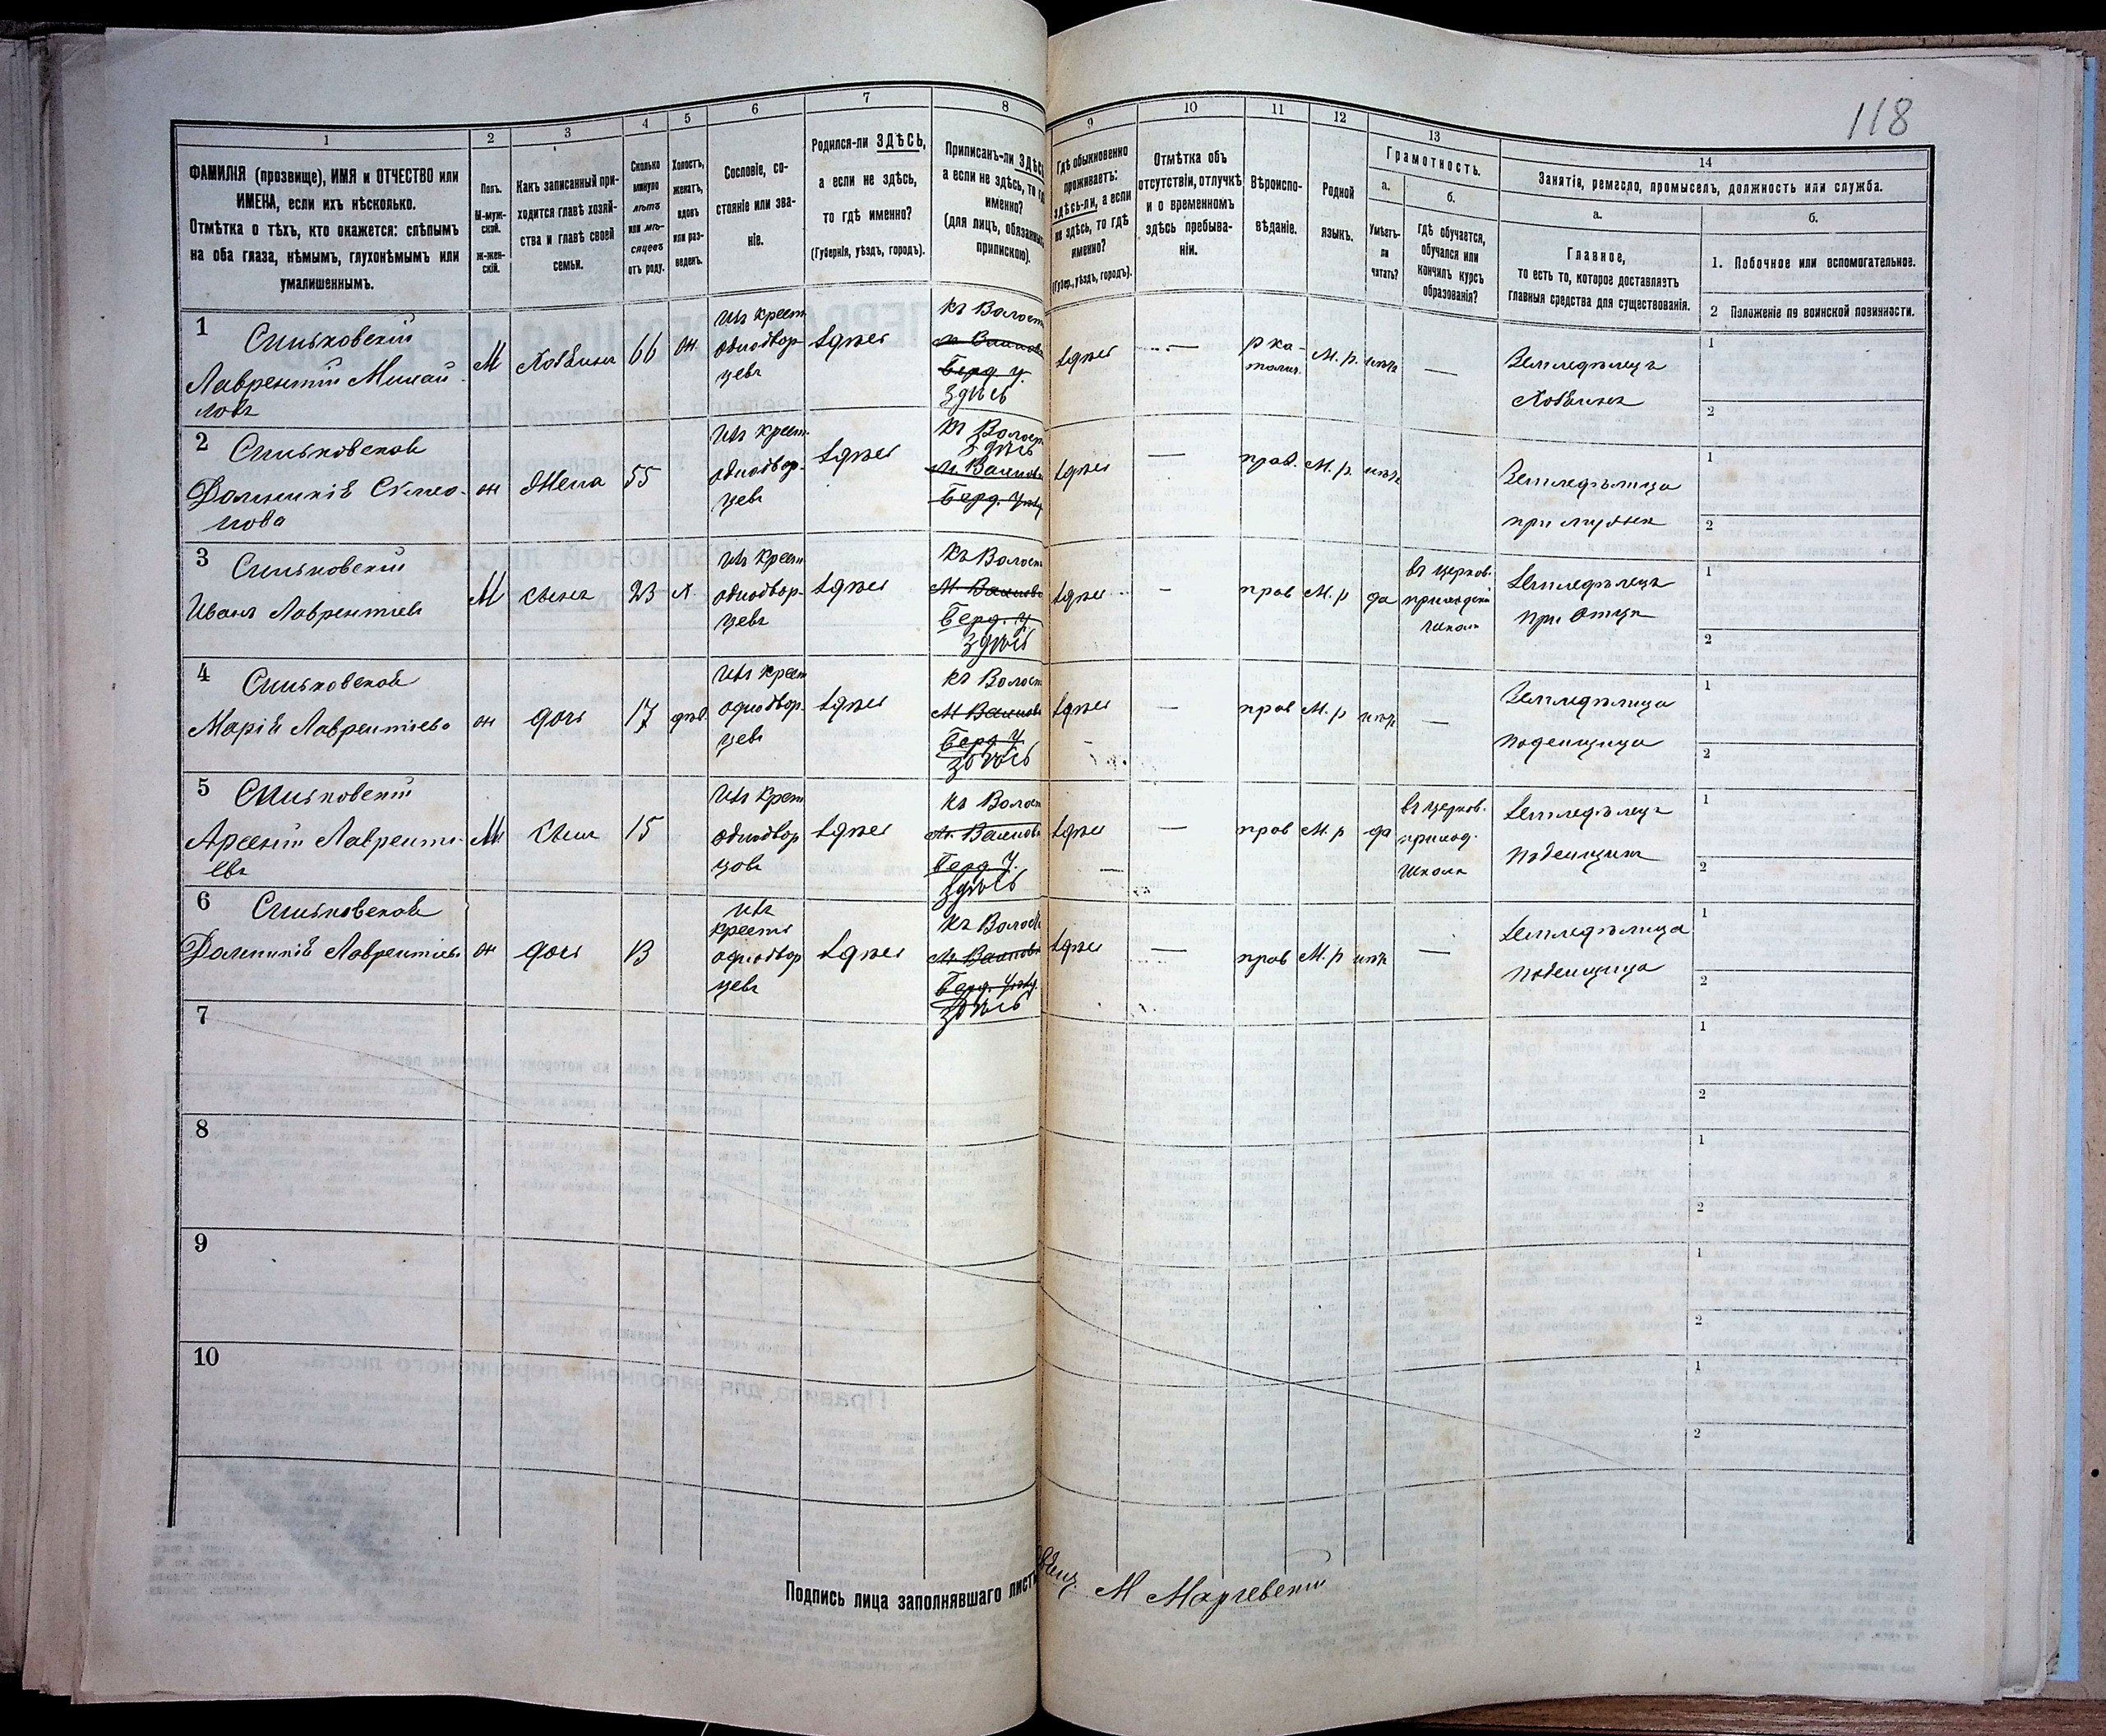 118
1
2
3
4
5
6
7
8
9
10
11
12
13
14
ФАМИЛІЯ (прозвище), ИМЯ и ОТЧЕСТВО или
ИМЕНА, если ихъ нѣсколько.
Отмѣтка о тѣхъ, кто окажется: слѣпымъ
на оба глаза, нѣмымъ, глухонѣмымъ или
умалишеннымъ.
Полъ.
М-муж-
ской.
Ж-жен-
скій.
Какъ записанный при-
ходится главѣ хозяй-
ства и главѣ своей
семьи.
Сколько
минуло
лѣтъ
или мѣ-
сяцевъ
отъ роду.
Холостъ,
женатъ,
вдовъ
или раз-
веденъ.
Сословіе, со-
стояніе или зва-
ніе.
Родился-ли ЗДѢСЬ,
а если не здѣсь,
то гдѣ именно?
(Губернія, уѣздъ, городъ).
Приписанъ-ли ЗДѢСЬ
а если не здѣсь, то гдѣ
именно?
(для лицъ, обязанныхъ
припискою).
Гдѣ обыкновенно
проживаетъ:
здѣсь-ли, а если
не здѣсь, то гдѣ
именно?
(Губер., уѣздъ, городъ).
Отмѣтка объ
отсутствіи, отлучкѣ
и о временномъ
здѣсь пребыва-
ніи.
Вѣроиспо-
вѣданіе.
Родной
языкъ.
Грамотность.
а.
Умѣетъ-
ли
читать?
б.
гдѣ обучается,
обучался или
кончилъ курсъ
образованія?
Занятія, ремесло, промыселъ, должность или служба.
а.
Главное,
то есть то, которое доставляетъ
главныя средства для существованія.
б.
1. Побочное или вспомогательное.
2 Положеніе по воинской повинности.
1
Лаврентій Михай-
ловъ
М
Хозяинъ
66
изъ крест
однодвор-
цевъ
здѣсь
къ Волост
Берд. у.
здѣсь
здѣсь
—
р. ка-
толич.
М. р.
нѣтъ
—
Земледѣлецъ
Хозяинъ
1
2
2
жена
55
изъ крест
однодвор-
цевъ
здѣсь
къ Волост
здѣсь
здѣсь
—
прав.
М. р.
нѣтъ
Земледѣлица
при мужѣ
1
2
3
Иванъ Лаврентіевъ
М
сынъ
23
х.
изъ крест
однодвор-
цевъ
здѣсь
къ Волост
Берд. у.
здѣсь
здѣсь
—
прав
М. р
да
въ церков.
приходской
школѣ
Земледѣлецъ
при Отцѣ
1
2
4
Марія Лаврентіева
дочь
17
дѣв.
изъ крест
однодвор-
цевъ
здѣсь
къ Волост
Берд у
здѣсь
здѣсь
—
прав
М. р
нѣтъ
—
Земледѣлица
поденщица
1
2
5
Арсеній Лавренті-
евъ
М
сынъ
15
изъ крест
однодвор
цовъ
здѣсь
къ Волост
Берд у.
здѣсь
здѣсь
—
прав
М. р
да
въ церков.
приход.
школѣ
Земледѣлецъ
поденщикъ
1
2
6
дочь
13
изъ
крестъ
однодвор
цевъ
здѣсь
къ Волост
здѣсь
здѣсь
—
прав
М. р
нѣтъ
—
Земледѣлица
поденщица
1
2
7
1
2
8
1
2
9
1
2
10
1
2
Подпись лица заполнявшаго листъ